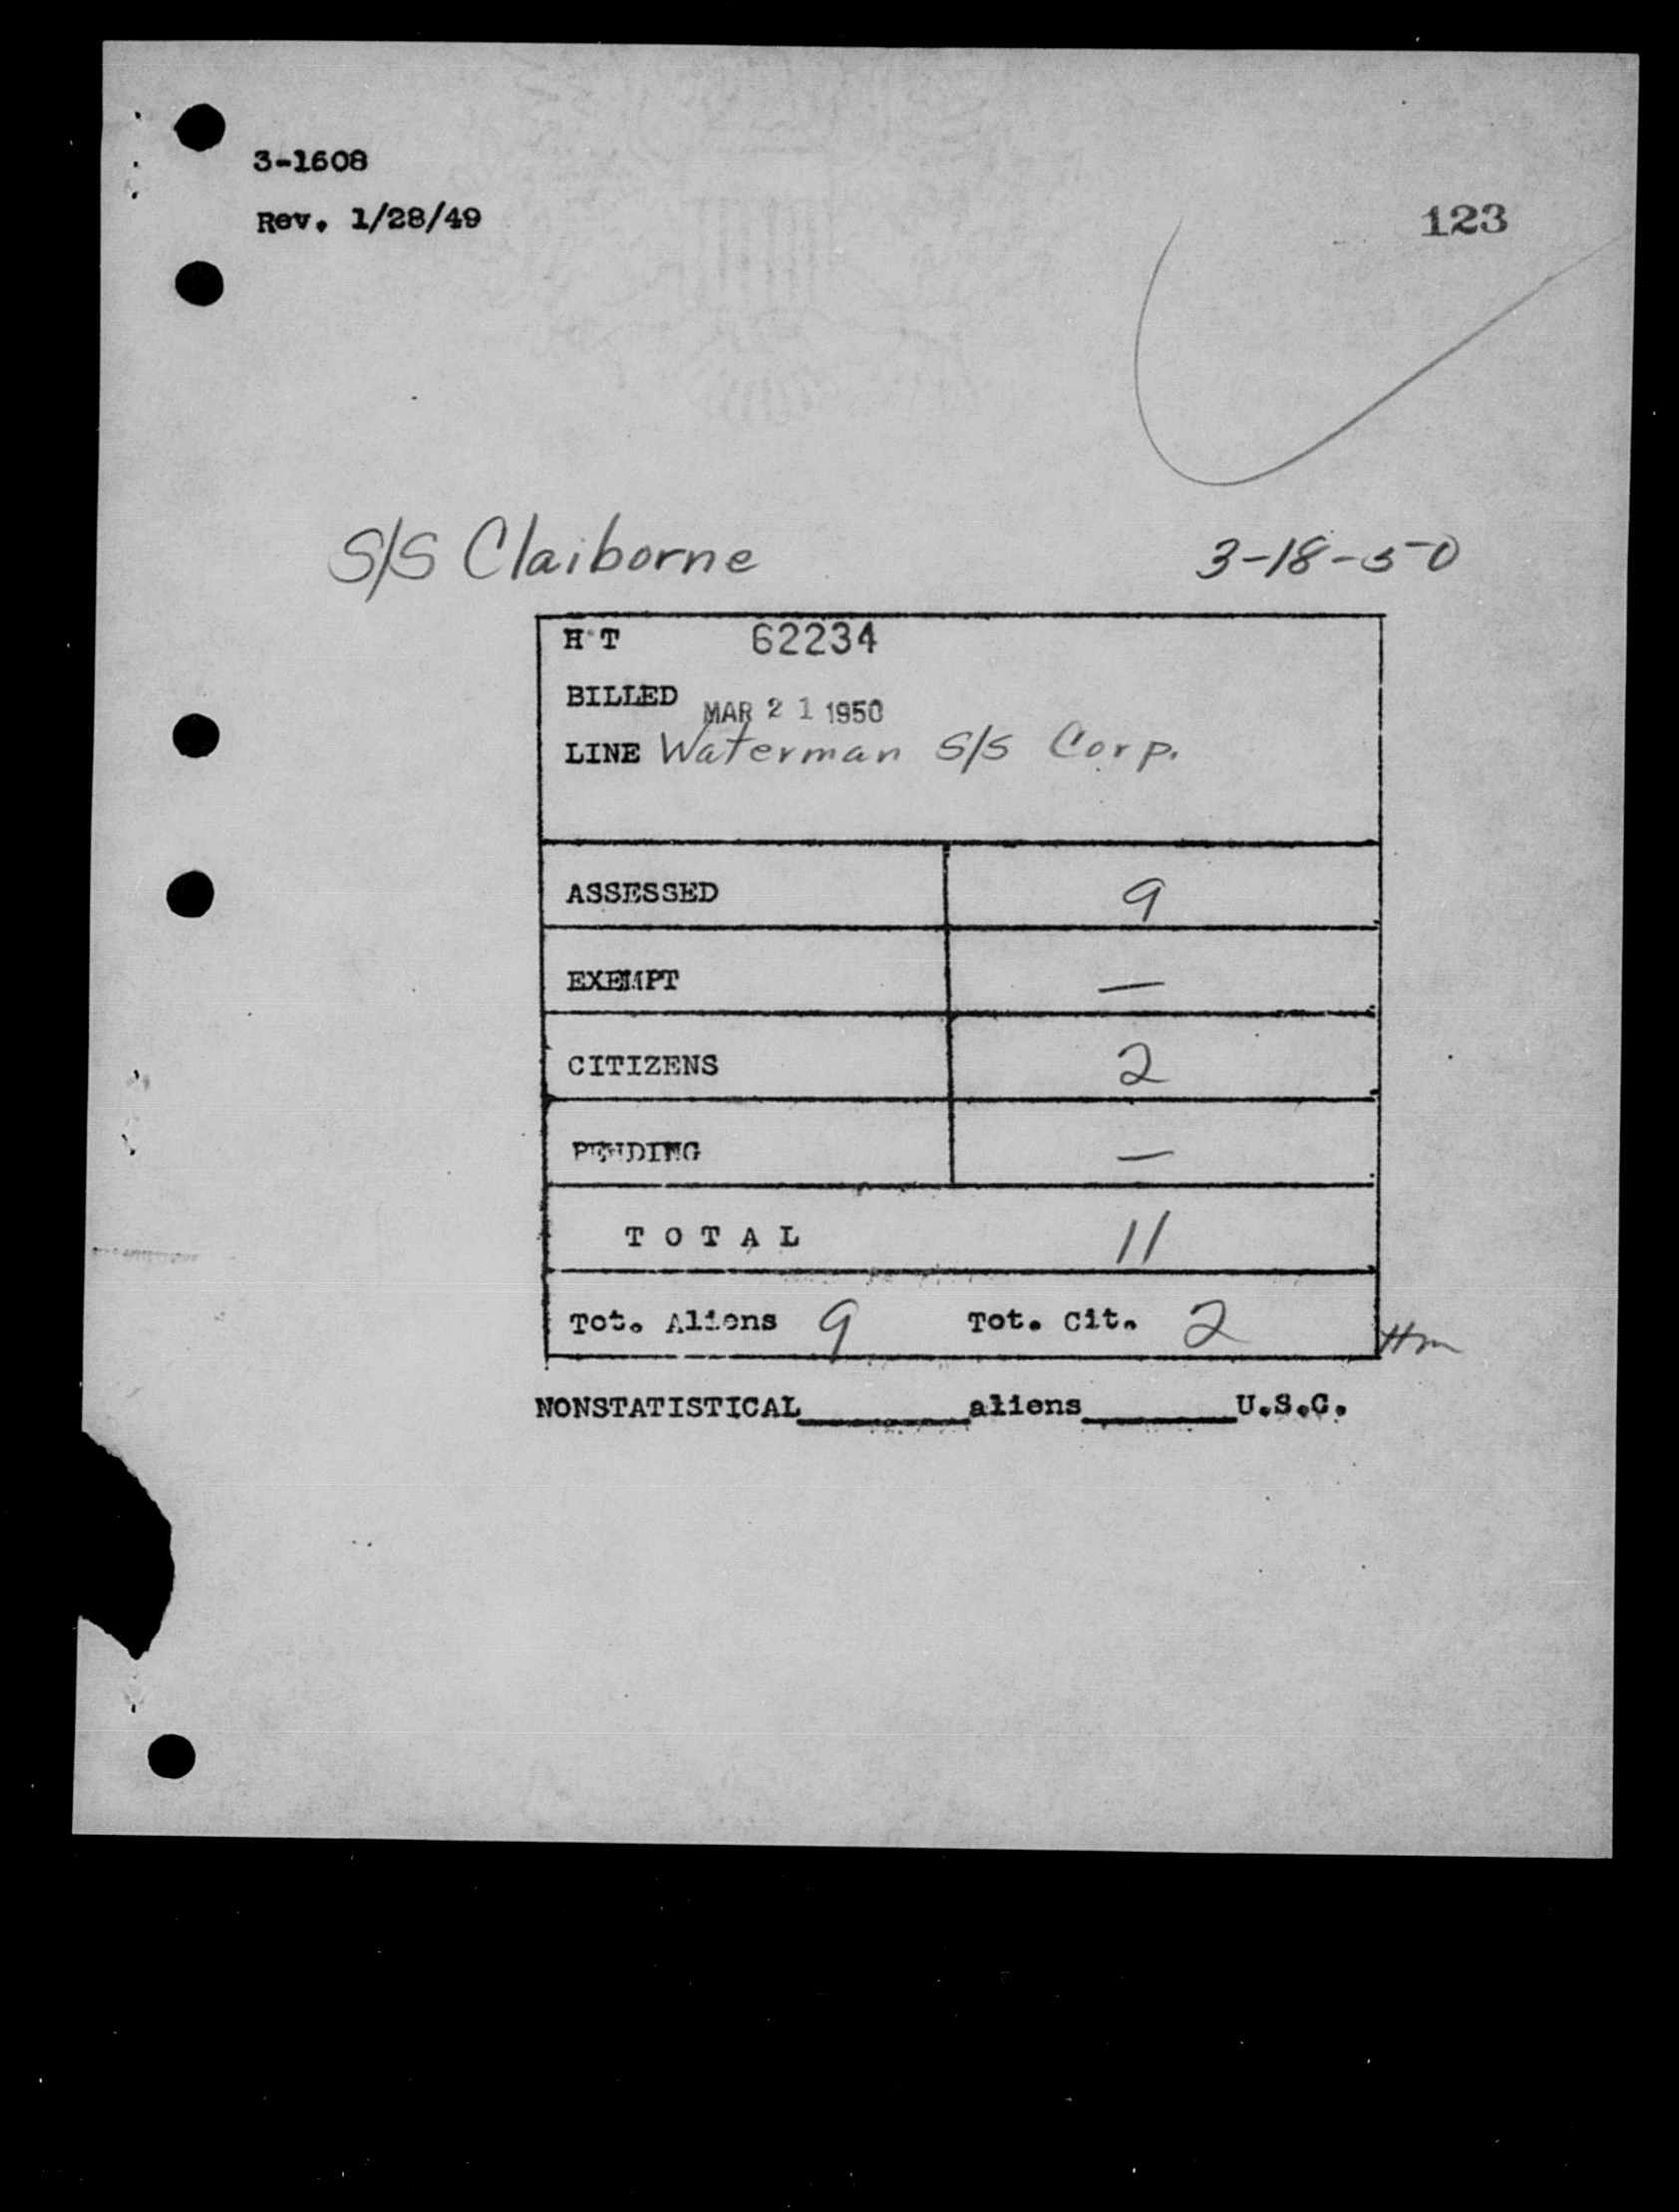 3-1608
Rev. 1/28/49
123
S/S Claiborne 3-18-50
H T 62234
BILLED MAR 21 1950
LINE Waterman S/S Corp.
ASSESSED 9
EXEMPT —
CITIZENS 2
PENDING —
T O T A L 11
Tot. Aliens 9 Tot. Cit. 2
NONSTATISTICAL________aliens________U.S.C.